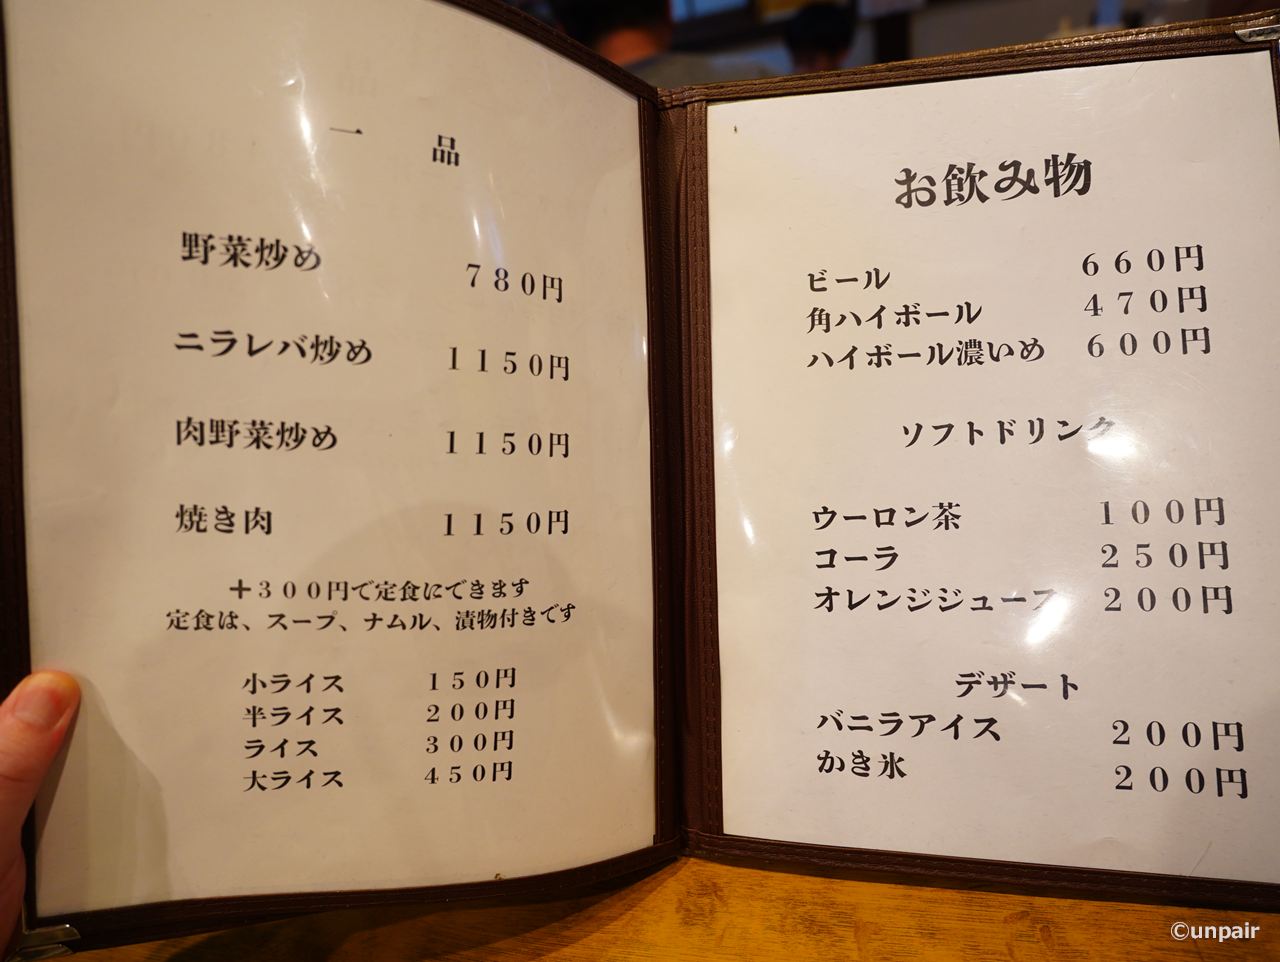 一品
野菜炒め 780円
ニラレバ炒め 1150円
肉野菜炒め 1150円
焼き肉 1150円
＋300円で定食にできます
定食は、スープ、ナムル、漬物付きです
小ライス 150円
半ライス 200円
ライス 300円
大ライス 450円
お飲み物
ビール 660円
角ハイボール 470円
ハイボール濃いめ 600円
ソフトドリンク
ウーロン茶 100円
コーラ 250円
オレンジジュース 200円
デザート
バニラアイス 200円
かき氷 200円
©unpair